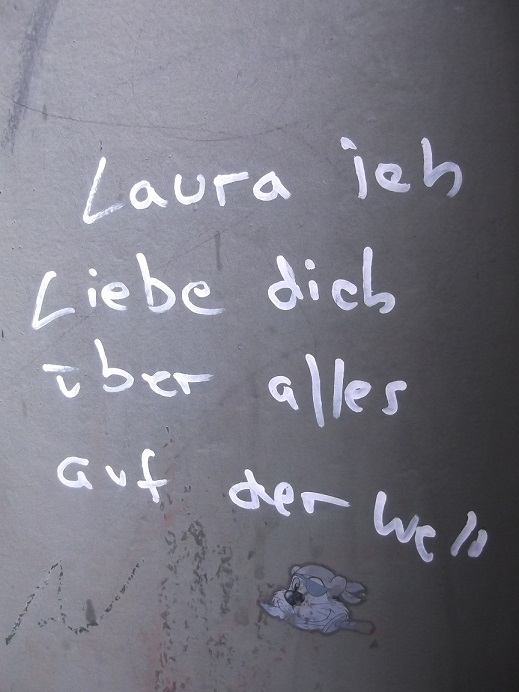 Laura ich
Liebe dich
über alles
auf der Welt